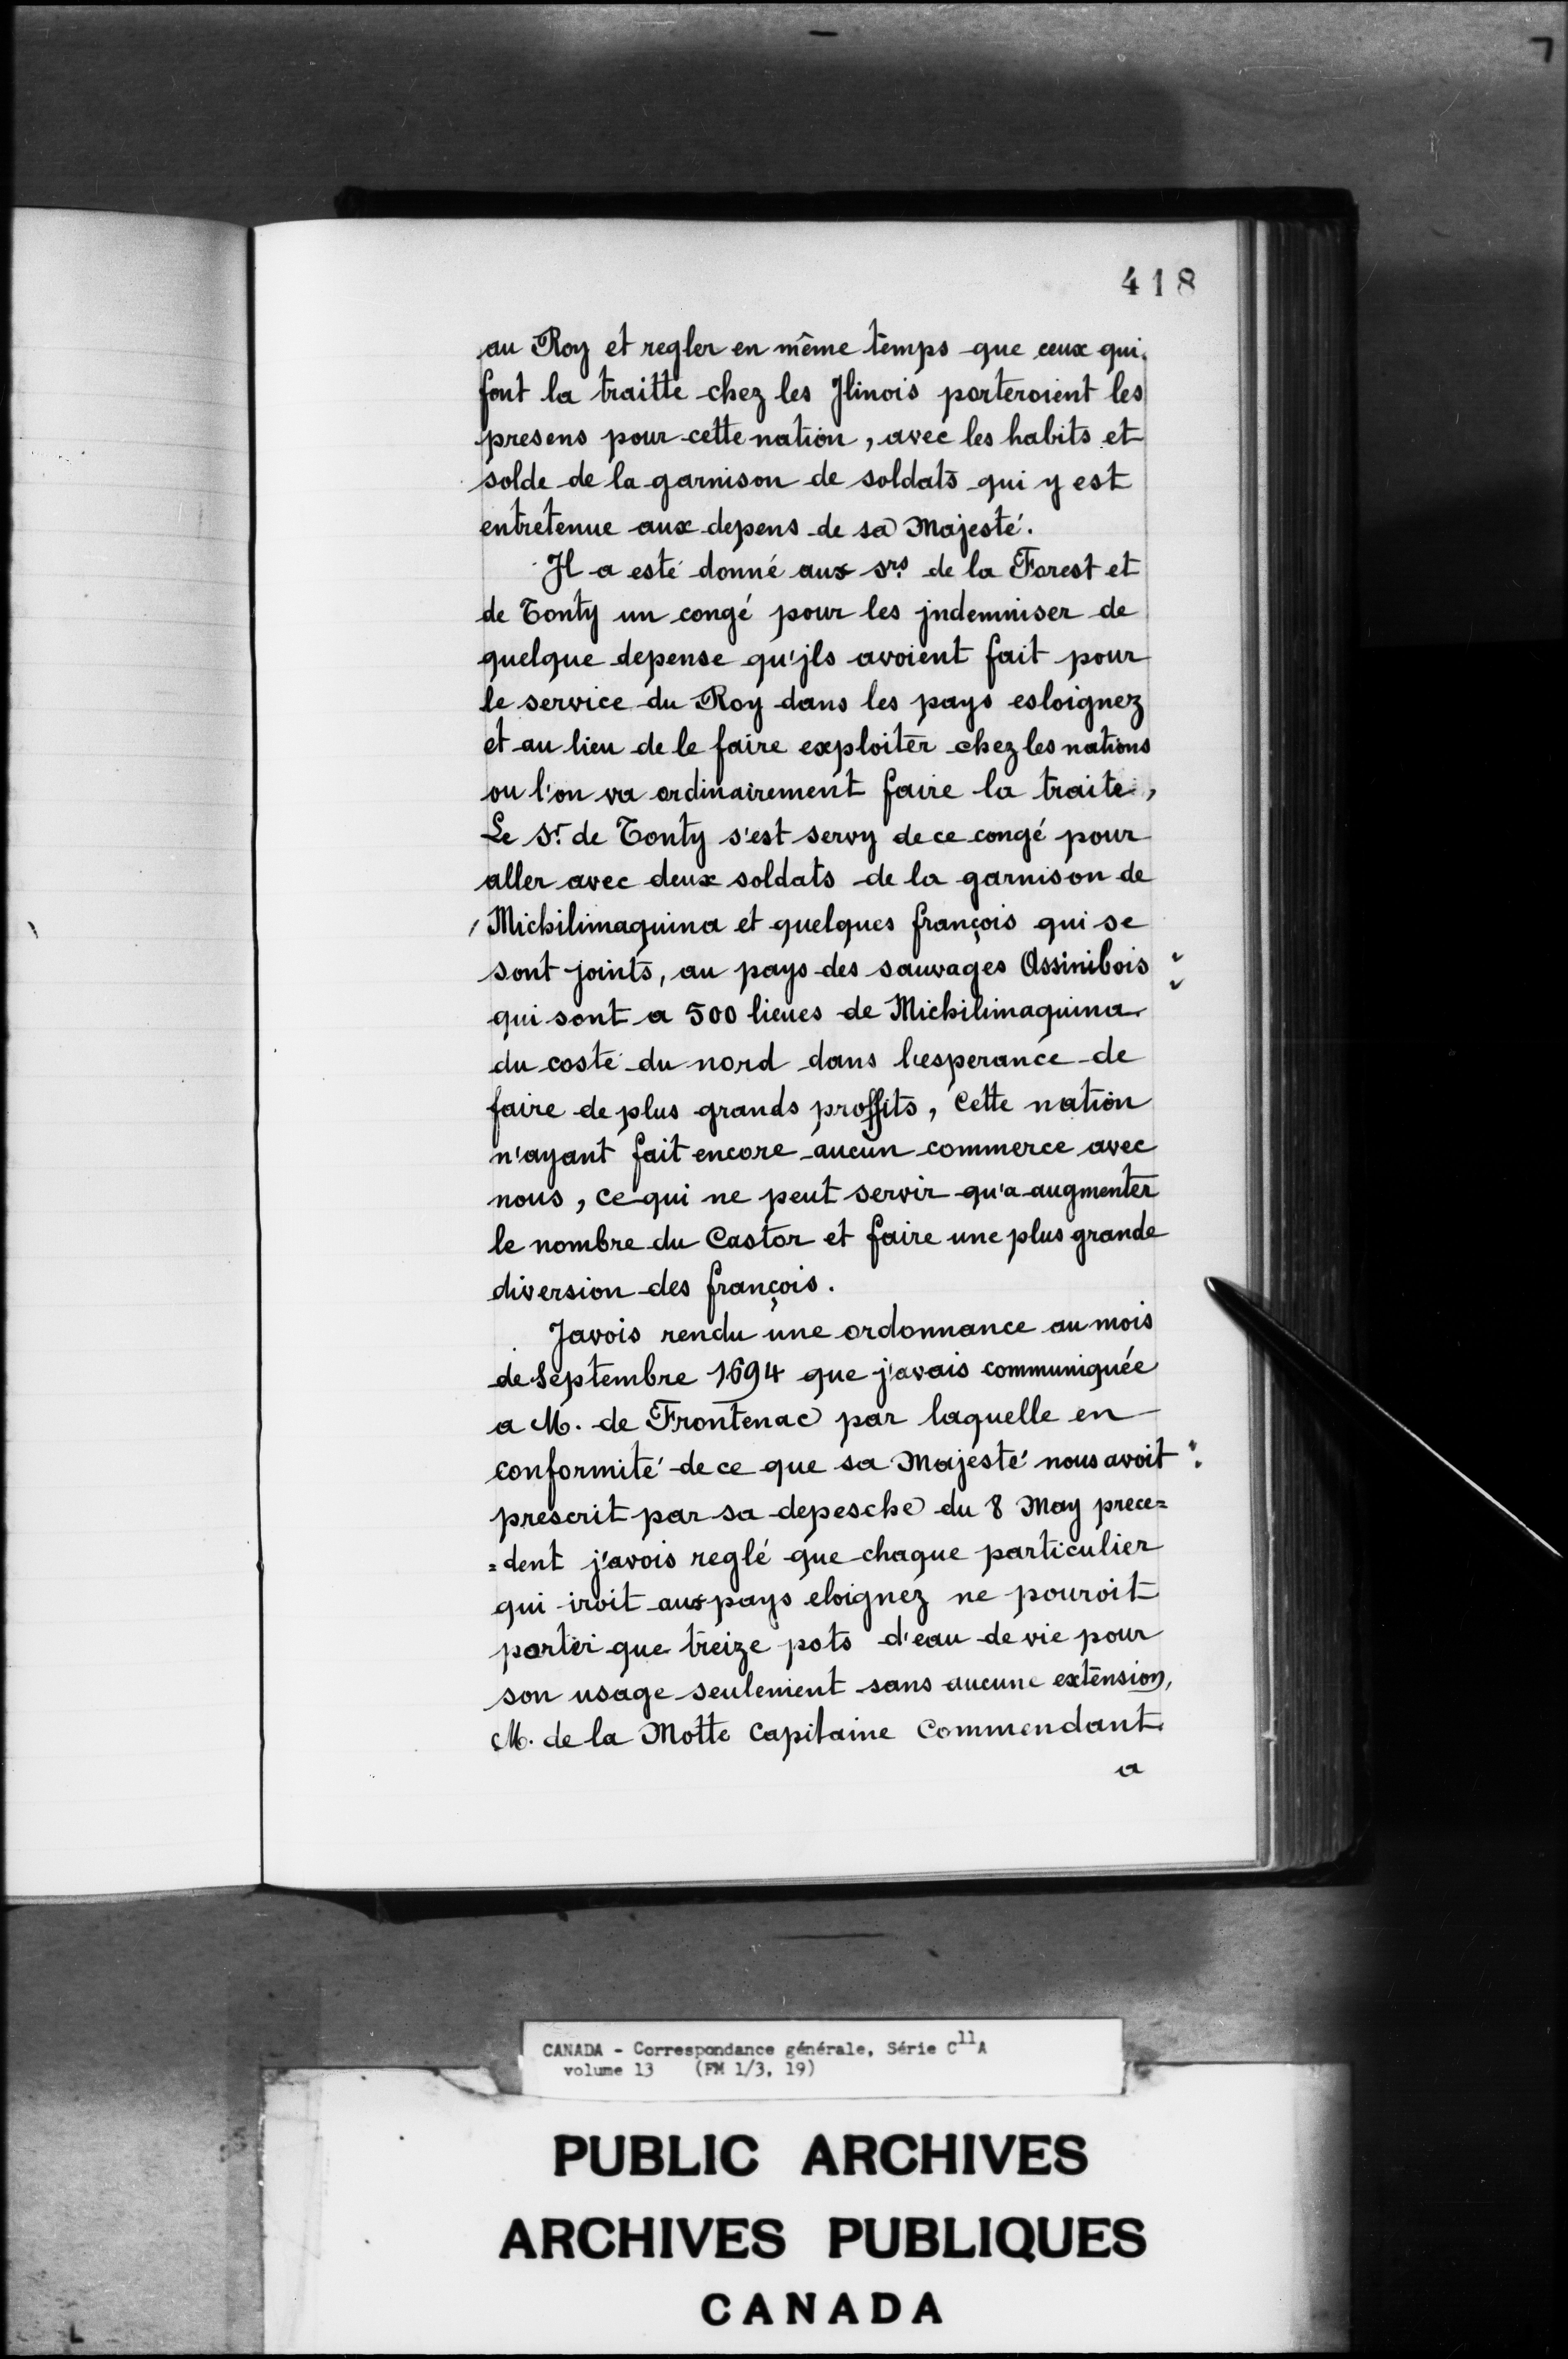 418
au Roy et regler en même temps que ceux qui
font la traitte chez les Jlinois porteroient les
presens pour cette nation, avec les habits et
solde de la garnison de soldats qui y est
entretenue aux depens de sa Majesté.
Il a esté donné aux srs. de la Forest et
de Tonty un congé pour les jndemniser de
quelque depense qu'jls avoient fait pour
le service du Roy dans les pays esloignez
et au lieu de le faire exploiter chez les nations
ou l'on va ordinairement faire la traite,
Le Sr. de Tonty s'est servy de ce congé pour
aller avec deux soldats de la garnison de
Michilimaquina et quelques françois qui se
sont joints, au pays des sauvages Assinibois
qui sont a 500 lieues de Michilimaquina
du costé du nord dans l'esperance de
faire de plus grands proffits, Cette nation
n'ayant fait encore aucun commerce avec
nous, ce qui ne peut servir qu'a augmenter
le nombre du Castor et faire une plus grande
diversion des françois.
Javois rendu une ordonnance au mois
de Septembre 1694 que j'avais communiquée
a M. de Frontenac par laquelle en
conformité de ce que sa Majesté nous avoit
prescrit par sa depesche du 8 May prece=
=dent j'avois reglé que chaque particulier
qui iroit aux pays eloignez ne pouroit
porter que treize pots d'eau de vie pour
son usage seulement sans aucune extension,
M. de la Motte Capitaine Commendant
a
CANADA - Correspondance générale, Série C11A
volume 13 (FM 1/3, 19)
PUBLIC ARCHIVES
ARCHIVES PUBLIQUES
CANADA